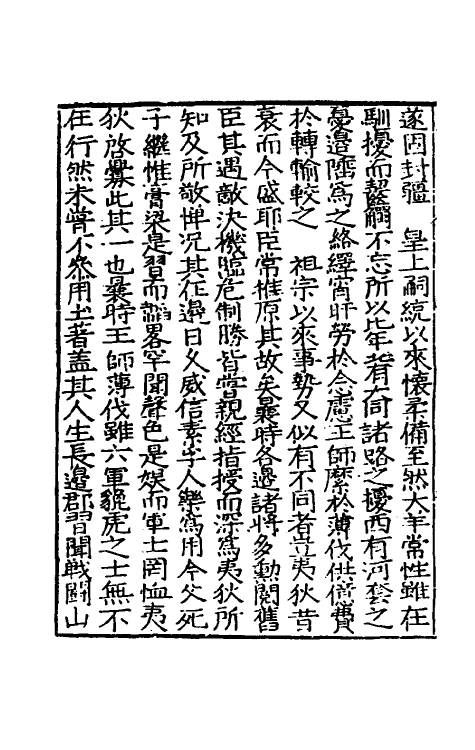 遂固封疆　皇上嗣統以來懷柔備至然犬羊常性雖在
馴擾而䂮齧不忘所以比年者有大同諸路之擾西有河套之
憂邉陲爲之絡繹宵旰勞於念慮王師縻於薄伐供億費
於轉輸較之　祖宗以來事勢又似有不同者豈夷狄昔
衰而今盛耶臣常推原其故矣曩時各邊諸將多勳閥舊
臣其遇敵決機臨危制勝皆嘗親經指授而深爲夷狄所
知及所敬憚况其在邊日久威信素孚人樂爲用今父死
子繼惟膏粱是習而韜畧罕聞聲色是娱而軍士罔恤夷
狄啓釁此其一也曩時王師薄伐雖六軍貔虎之士無不
在行然未嘗不叅用土著盖其人生長邉郡習聞戰鬭山